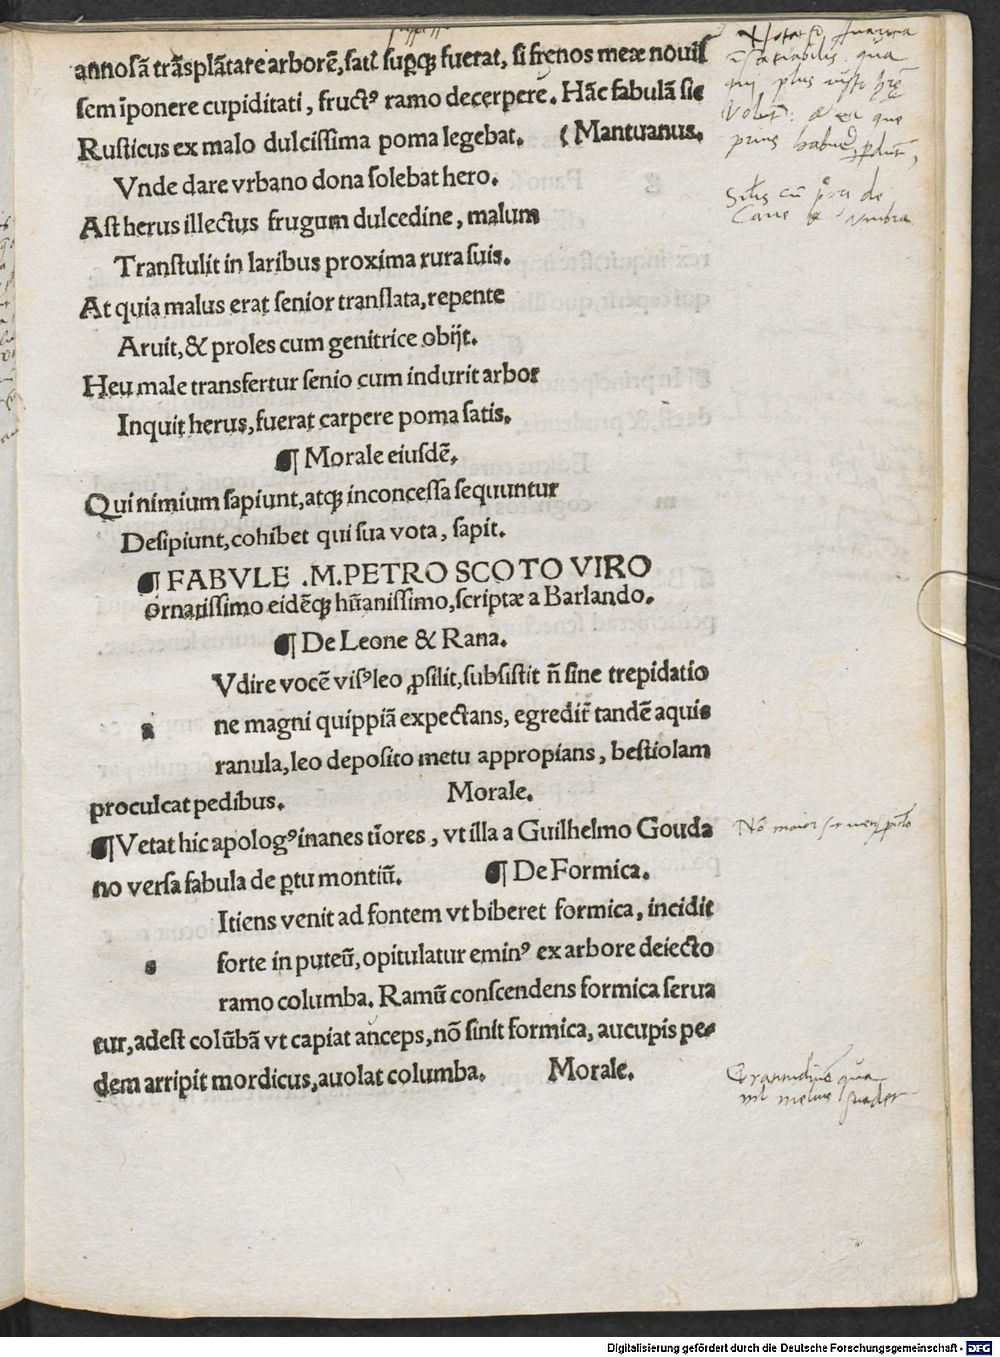 annosã trãsplãtare arborẽ, sati᷒ supꝗꝫ fuerat, si frenos meæ nouis
sem ĩponere cupiditati, fructꝰ ramo decerpere. Hãc fabulã sic
Rusticus ex malo dulcissima poma legebat. (Mantuanus.
Vnde dare vrbano dona solebat hero.
Ast herus illectus frugum dulcedine, malum
Transtulit in laribus proxima rura suis.
At quia malus erat senior translata, repente
Aruit, & proles cum genitrice obijt.
Heu male transfertur senio cum indurit arbor
Inquit herus, fuerat carpere poma satis.
¶ Morale eiusdẽ.
Qui nimium sapiunt, atqꝫ inconcessa sequuntur
Desipiunt, cohibet qui sua vota, sapit.
¶ FABVLE .M. PETRO SCOTO VIRO
ornatissimo eidẽqꝫ hũanissimo, scriptæ a Barlando.
¶ De Leone & Rana.
Vdire vocẽ visꝰ leo ꝓsilit, subsistit ñ sine trepidatio
a ne magni quippiã expectans, egredit᷒ tandẽ aquis
ranula, leo deposito metu appropians, bestiolam
proculcat pedibus. Morale.
¶ Vetat hic apologꝰ inanes tĩores, vt illa a Guilhelmo Gouda
no versa fabula de ꝑtu montiũ. ¶ De Formica.
Itiens venit ad fontem vt biberet formica, incidit
s forte in puteũ, opitulatur eminꝰ ex arbore deiecto
ramo columba. Ramũ conscendens formica serua
tur, adest colũbã vt capiat anceps, nõ sinit formica, aucupis pe-
dem arripit mordicus, auolat columba. Morale.
qui plus iusto
prius
Cane & vmbra
Nõ maior
Gratitudinẽ
nil melius
Digitalisierung gefördert durch die Deutsche Forschungsgemeinschaft - DFG